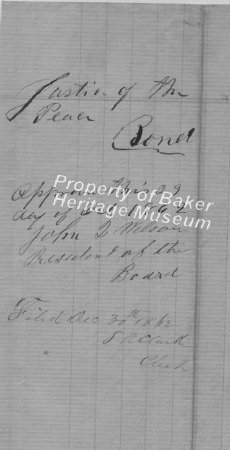 Justice of the
Peace
Bond
Approved this 22
day of 1862
John Wilson
President of the
Board
Filed Dec 30th 1862
Clark
Clerk
Property of Baker
Heritage Museum